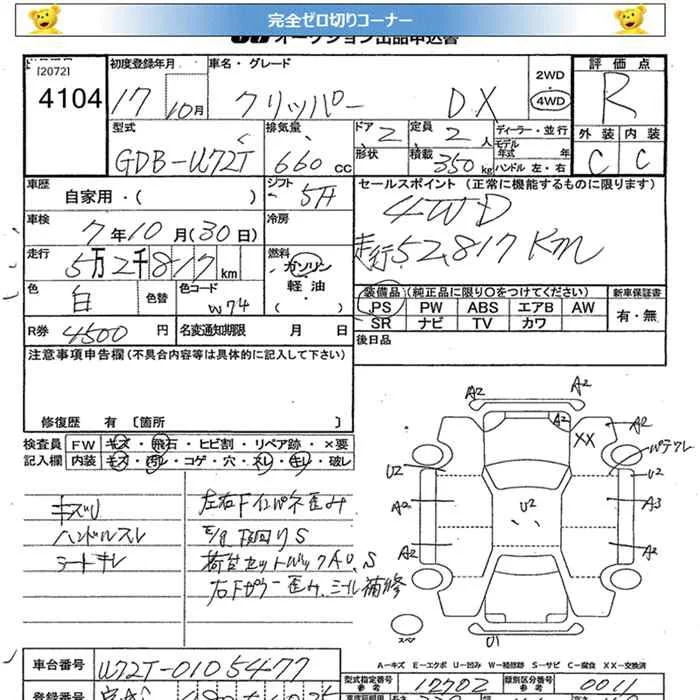 完全ゼロ切りコーナー
オークション出品申込書
[2072]
4104
初度登録年月
17 10月
車名・グレード
クリッパー DX
2WD
4WD
評価点
R
外装 内装
C C
型式
GDB-U72T
排気量
660 cc
ドア 2
形状
定員 2 人
積載 350 kg
ディーラー・並行
モデル年式 年
ハンドル 左・右
車歴
自家用・( )
シフト
5F
セールスポイント (正常に機能するものに限ります)
4WD
走行52,817Km
車検
7年10月(30日)
冷房
走行
5万2千817km
燃料
ガソリン
軽油
( )
色
白
色替
色コード
W74
装備品 (純正品に限り○をつけてください)
新車保証書
PS PW ABS エアB AW
SR ナビ TV カワ
有・無
R券 4500円
名変通知期限 月 日
後日品
注意事項申告欄(不具合内容等は具体的に記入して下さい)
修復歴 有 [箇所 ]
検査員 FW キズ・飛石・ヒビ割・リペア跡・×要
記入欄 内装 キズ・汚レ・コゲ・穴・スレ・キレ・破レ
キズU
ハンドルスレ
シートキレ
左右Fインパネ歪み
E/g下回りS
荷台セットバックAU、S
右Fピラー歪み、ミール補修
A2
A2
A2
XX
A2
パテクレ
U2
U2
A2
U2
A3
A2
A2
スペア
U1
A-キズ E-エクボ U-凹み W-補修跡 S-サビ C-腐食 XX-交換済
車台番号
U72T-0105477
型式指定番号
参考
12702
類別区分番号
参考
0011
登録番号